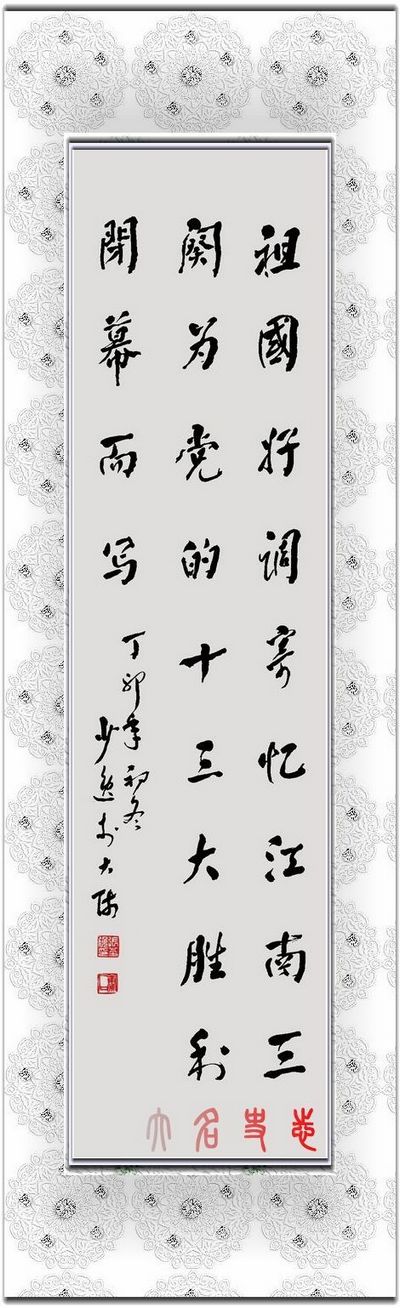 祖國好调寄忆江南三
阕为党的十三大胜利
閉幕而写
丁卯年初冬
少逸於大
大名史志